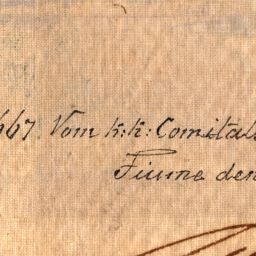 667 Vom k: k: Comitats
Fiume den